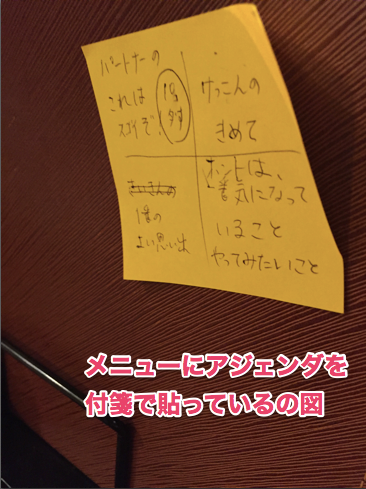 パートナーの
これは
スゴイぞ!
けっこんの
きめて
さいきんの
1番の
よい思い出
ホントは、
気になって
いること
やってみたいこと
メニューにアジェンダを
付箋で貼っているの図